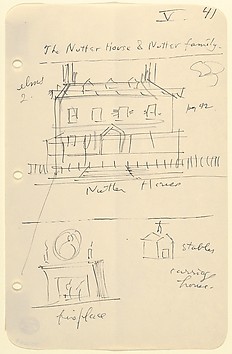 V. 41
The Nutter House & Nutter family.
elms
2
pg 42
Nutter House
stables
carriage
house.
fireplace